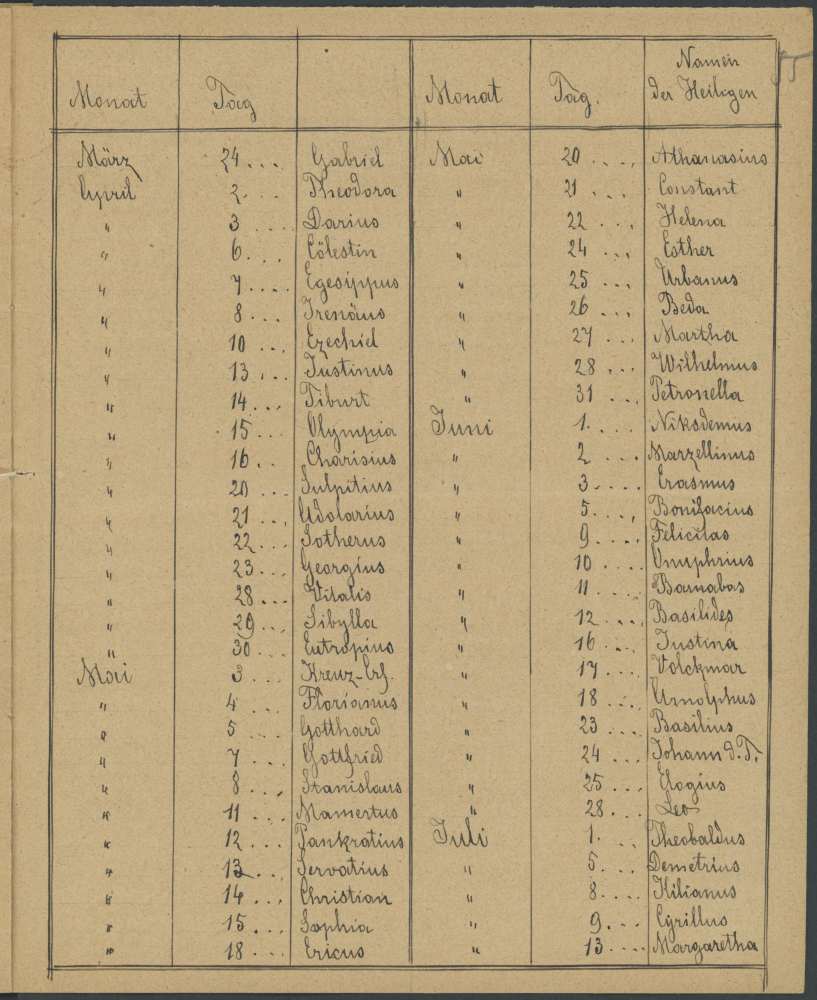 55
Namen
Monat Tag Monat Tag. der Heiligen
März 24 . . . Gabriel Mai 20 . . . . Athanasius
April 2 . . . Theodora " 21 . . . Constant
" 3 . . . . Darius " 22 . . . Helena
" 6 . . . Cölestin " 24 . . . Esther
" 7 . . . . Egesippus " 25 . . . Urbanus
" 8 . . . Irenäus " 26 . . . Beda
" 10 . . . Ezechiel " 27 . . . Martha
" 13 . . . Justinus " 28 . . . Wilhelmus
" 14 . . . Tiburt " 31 . . . Petronella
" 15 . . . Olympia Juni 1. . . . Nikodemus
" 16 . . Charisius " 2 . . . Marzellinus
" 20 . . . Sulpitius " 3 . . . . Erasmus
" 21 . . . Adolarius " 5 . . . . Bonifacius
" 22 . . . Sotherus " 9 . . . . Felicitas
" 23 . . . Georgius " 10 . . . . Onuphrius
" 28 . . . Vitalis " 11 . . . . Barnabas
" 29 . . . Sibylla " 12 . . . . Basilides
" 30 . . . Eutropius " 16 . . . Justina
Mai 3 . . . Kreuz-Erf. " 17 . . . Volckmar
" 4 . . . Florianus " 18 . . . Arnolphus
" 5 . . . Gotthard " 23 . . . Basilius
" 7 . . . Gottfried " 24 . . . Johann d. T.
" 8 . . . Stanislaus " 25 . . . Elogius
" 11 . . . Mamertus " 28 . . . Leo
" 12 . . . Pankratius Juli 1. . . Theobaldus
" 13 . . . Servatius " 5 . . . Demetrius
" 14 . . . Christian " 8 . . . Kilianus
" 15 . . . Sophia " 9 . . . Cyrillus
" 18 . . . Ericus " 13 . . . . Margaretha